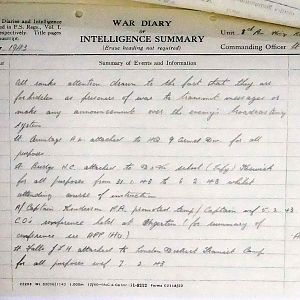 Diaries and Intelligence
in F.S. Regs., Vol. I.
respectively. Title pages
manuscript.
WAR DIARY
OF
INTELLIGENCE SUMMARY
(Erase heading not required)
Unit
Commanding Officer
1943
Summary of Events and Information
All ranks attention drawn to the fact that they are
forbidden as prisoner of war to transmit messages or
make any announcement over the enemy's broadcasting
system
Lt. Armitage A. attached to HQ 9 Armd Div. for all
purposes
H.C. attached to School
for all purposes from 31. 1. 43 to 6. 2. 43 whilst
attending course of instruction
Captain Henderson promoted Captain wef 5. 2. 43
C.O's conference held at for summary of
conference see APP
Lt. attached to London District Transit Camp
for all purposes wef 7. 43